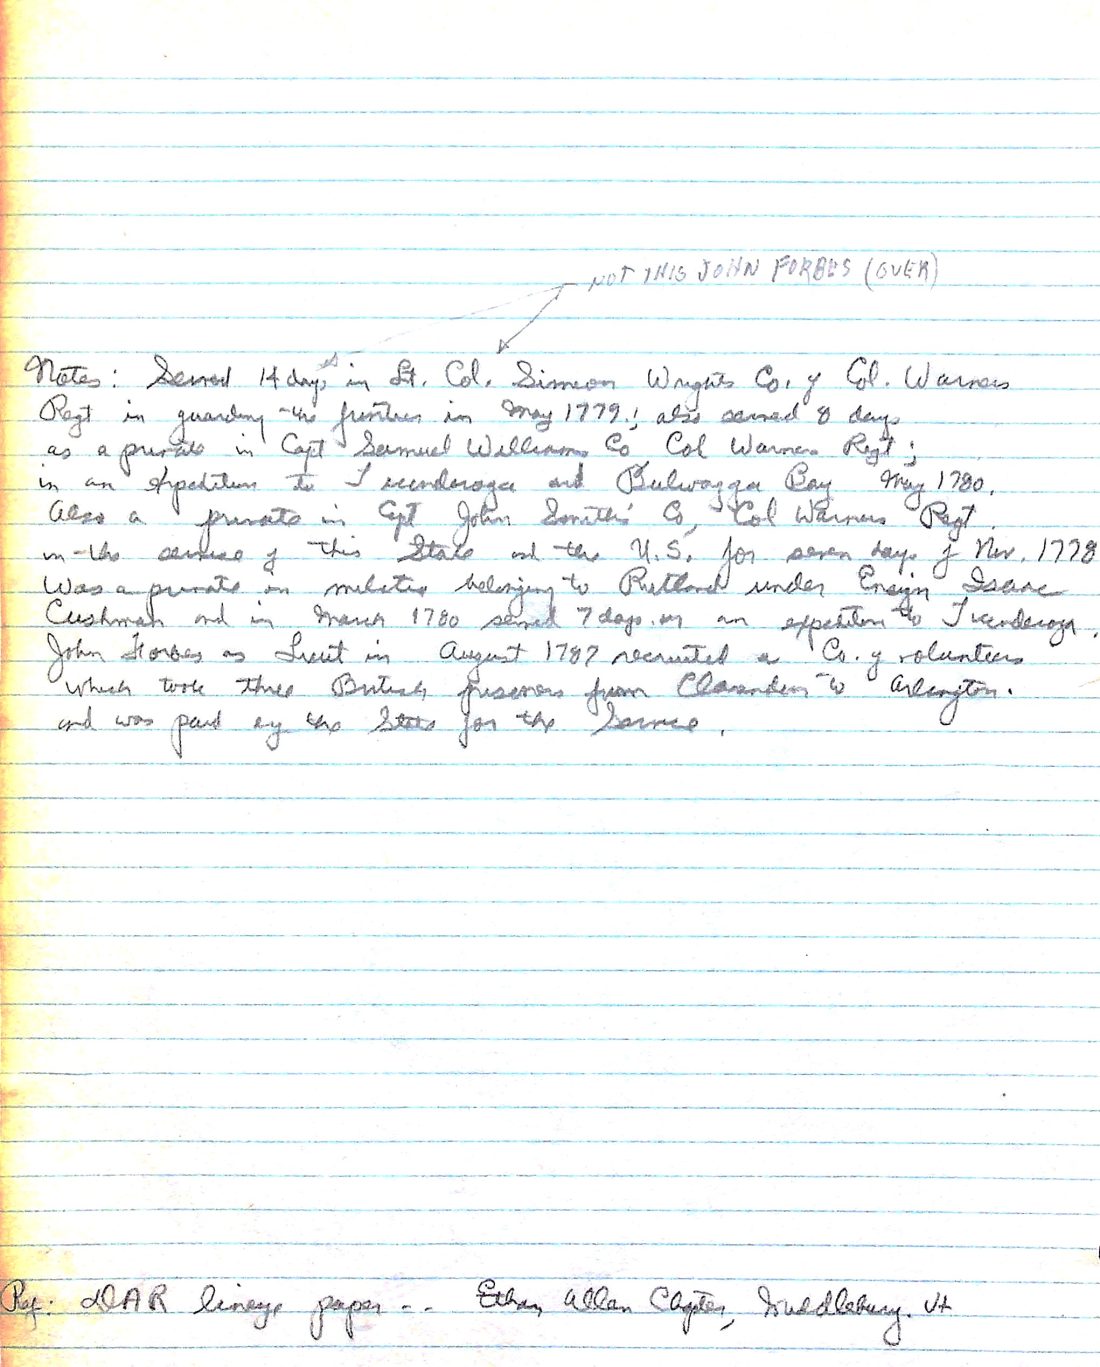 NOT THIS JOHN FORBES (OVER)
Notes: Served 14 days in Lt. Col. Simeon Wrights Co. of Col. Warners
Regt in guarding the frontier in May 1779.; also served 8 days
as a private in Capt Samuel Williams Co Col Warners Regt;
in an expedition to Ticonderoga and Bulwagga Bay May 1780.
Also a private in Capt John Smith's Co, Col Warners Regt.
in the service of this State and the U.S. for seven days of Nov. 1778
Was a private in militia belonging to Rutland under Ensign Isaac
Cushman and in March 1780 served 7 days in an expedition to Ticonderoga.
John Forbes as Lieut in August 1787 recruited a Co. of volunteers
which took three British prisoners from Clarendon to Arlington.
and was paid by the State for the Service.
Ref: DAR lineage paper -- Ethan Allan Chapter, Middlebury. Vt